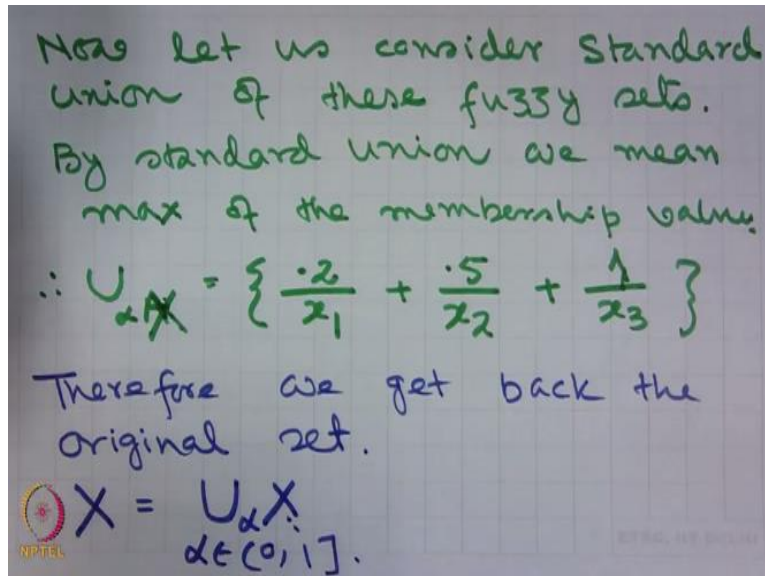 Now let us consider Standard
union of these fuzzy sets.
By standard union we mean
max of the membership value.
∴ ∪ αX = { .2/x₁ + .5/x₂ + 1/x₃ }
Therefore we get back the
original set.
X = ∪ αX
α∈(0,1].
NPTEL